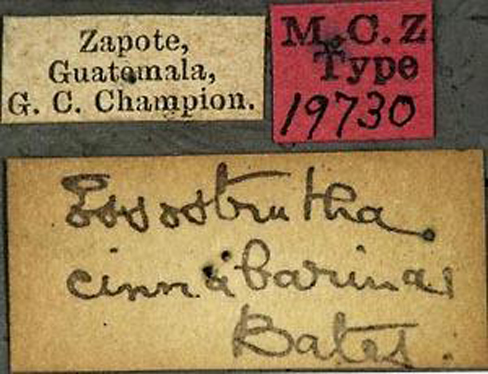 Zapote,
Guatemala,
G. C. Champion.
M.C.Z.
Type
19730
Essostrutha
cinnabarina
Bates.